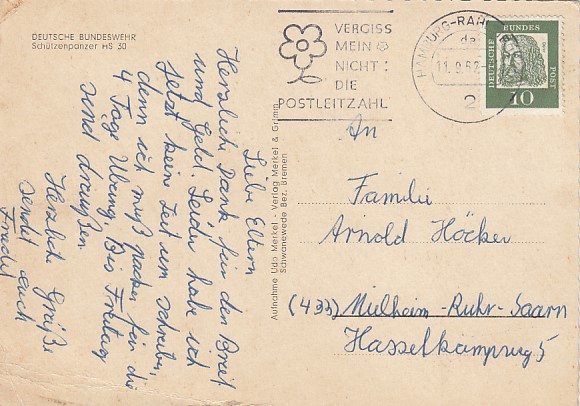 DEUTSCHE BUNDESWEHR
Schützenpanzer HS 30
VERGISS
MEIN
NICHT:
DIE
POSTLEITZAHL
HAMBURG-RAH
11.9.62-
2
DEUTSCHE BUNDES POST
10
Liebe Eltern
Herzlichen Dank für den Brief
und Geld. Leider habe ich
jetzt keine Zeit um schreiben,
denn ich muß packen für die
4 Tage Übung. Bis Freitag
sind draußen.
Herzliche Grüße
sendet euch
Aufnahme Udo Merkel - Verlag Merkel & Grimm
Schwanewede Bez. Bremen
An
Familie
Arnold Höcker
(433) Mülheim-Ruhr-Saarn
Hasselkampweg 5